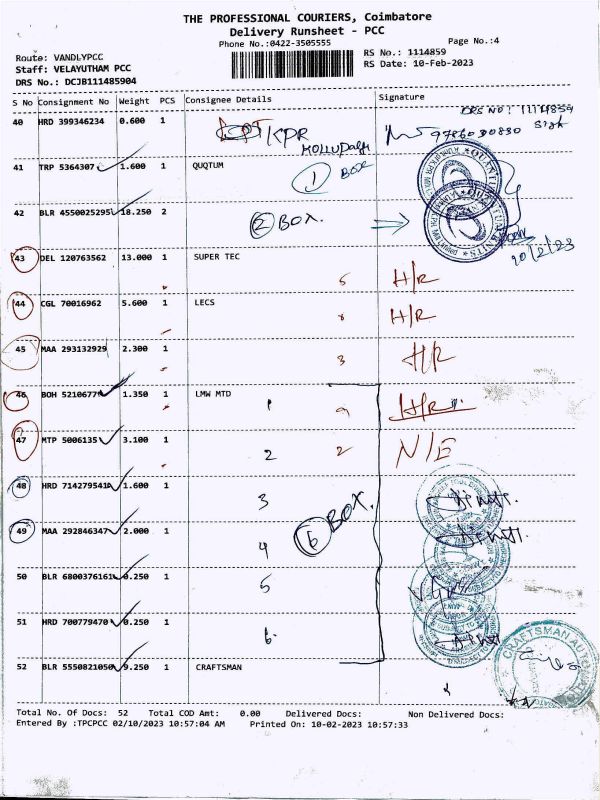 THE PROFESSIONAL COURIERS, Coimbatore
Delivery Runsheet - PCC
Phone No.:0422-3505555
Page No.:4
Route: VANDLYPCC
RS No.: 1114859
Staff: VELAYUTHAM PCC
RS Date: 10-Feb-2023
DRS No.: DCJB111485904
S No Consignment No Weight PCS Consignee Details Signature
DRS NO: 1114859
40 HRD 399346234 0.600 1 KPR
9786030830 Sigh
41 TRP 5364307 1.600 1 QUQTUM
1 BOX
42 BLR 4550025295 18.250 2
2 BOX.
10/2/23
43 DEL 120763562 13.000 1 SUPER TEC
5 H/R
44 CGL 70016962 5.600 1 LECS
H/R
45 MAA 293132929 2.300 1
3 H/R
46 BOH 5210677 1.350 1 LMW MTD
1 H/R
47 MTP 5006135 3.100 1
2 2 N/E
48 HRD 714279541 1.600 1
3
6 BOX.
49 MAA 292846347 2.000 1
4
50 BLR 6800376161 0.250 1
5
51 HRD 700779470 0.250 1
6.
52 BLR 5550821050 9.250 1 CRAFTSMAN
CRAFTSMAN AUTO
Total No. Of Docs: 52 Total COD Amt: 0.00 Delivered Docs: Non Delivered Docs:
Entered By :TPCPCC 02/10/2023 10:57:04 AM Printed On: 10-02-2023 10:57:33